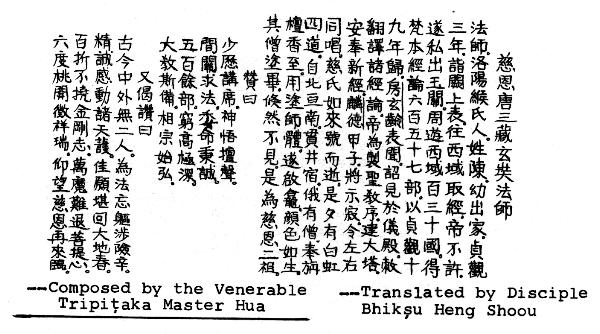 慈恩唐三藏玄奘法師
法師洛陽緱氏人。姓陳。幼出家。貞觀
三年。詣闕上表。往西域取經。帝不許。
遂私出玉關。周遊西域百三十國。得
梵本經論六百五十七部。以貞觀十
九年歸。房玄齡表聞。詔見於儀殿。敕
翻譯諸經論。帝為製聖教序。建大塔。
安奉新經。麟德甲子。將示寂。令左右
同唱慈氏如來號而逝。是夕有白虹
四道。自北亘南貫井宿。俄有僧奉旃
檀香至。用塗師體。遂啟龕。顏色如生。
其僧塗畢。倏然不見。是為慈恩二祖。
贊曰
少歷講席。神悟擅聲。
間關求法。委命秉誠。
五百餘部。窮高極深。
大教斯備。相宗始弘。
又偈讚曰
古今中外無二人。為法忘軀涉險辛。
精誠感動諸天護。佳願堪回大地春。
百折不撓金剛志。萬魔難退菩提心。
六度桃開徵祥瑞。仰望慈恩再來臨。
--Composed by the Venerable
Tripiṭaka Master Hua
--Translated by Disciple
Bhikṣu Heng Shoou